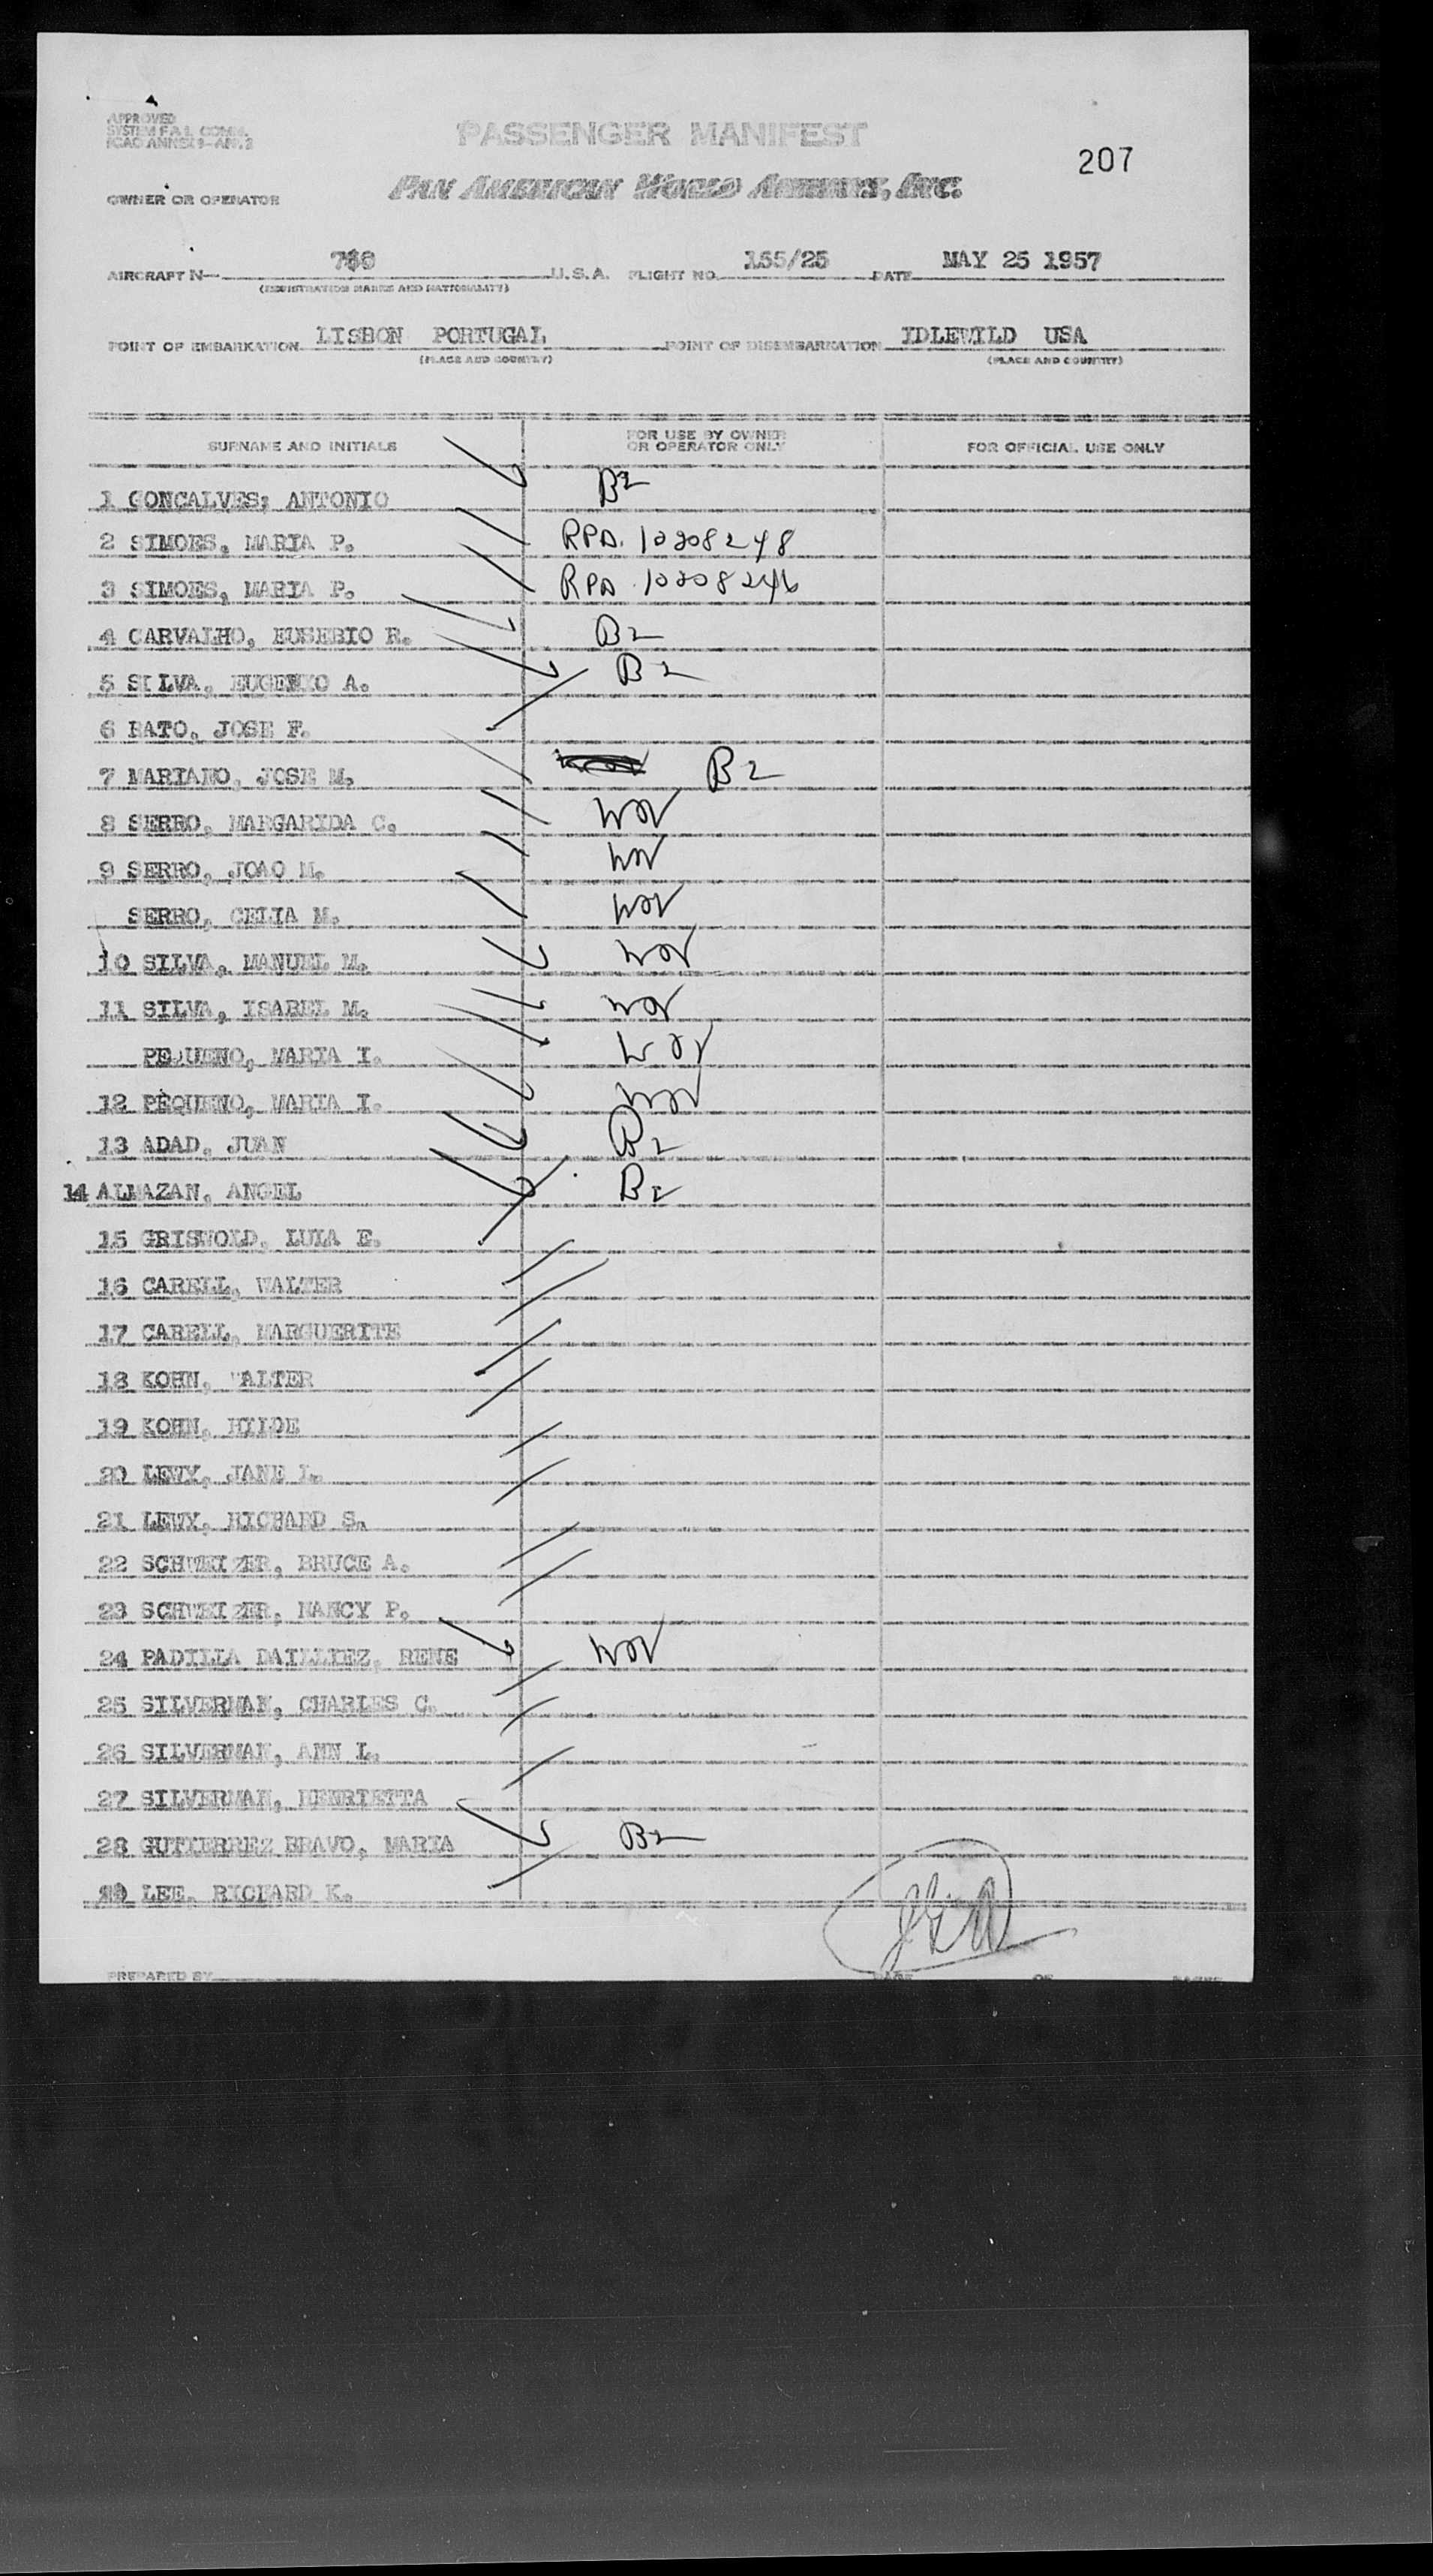 APPROVED
SYSTEM F.A.L. COMM.
ICAO ANNEX 9-APP. 2
PASSENGER MANIFEST
207
PAN AMERICAN WORLD AIRWAYS, INC.
OWNER OR OPERATOR
AIRCRAFT N- U.S.A. FLIGHT NO. 155/25 DATE MAY 25 1957
(REGISTRATION MARKS AND NATIONALITY)
POINT OF EMBARKATION LISBON PORTUGAL POINT OF DISEMBARKATION IDLEWILD USA
(PLACE AND COUNTRY) (PLACE AND COUNTRY)
SURNAME AND INITIALS FOR USE BY OWNER OR OPERATOR ONLY FOR OFFICIAL USE ONLY
1 GONCALVES; ANTONIO B2
2 SIMOES, MARIA P. RPA. 10208248
3 SIMOES, MARIA P. RPA 10208246
4 CARVALHO, EUSEBIO R. B2
5 SILVA, EUGENIO A. B2
6 RATO, JOSE F.
7 MARIANO, JOSE M. B2
8 SERRO, MARGARIDA C.
9 SERRO, JOAO M.
SERRO, CELIA M.
10 SILVA, MANUEL M.
11 SILVA, ISABEL M.
PEQUENO, MARIA I.
12 PEQUENO, MARIA I.
13 ADAD, JUAN B2
14 ALMAZAN, ANGEL B2
15 GRISWOLD, LULA E.
16 CARELL, WALTER
17 CARELL, MARGUERITE
18 KOHN, WALTER
19 KOHN, HILDE
20 LEWY, JANE L.
21 LEWY, RICHARD S.
22 SCHWEIZER, BRUCE A.
23 SCHWEIZER, NANCY P.
24 PADILLA DAILLIEZ, RENE
25 SILVERMAN, CHARLES C.
26 SILVERMAN, ANN L.
27 SILVERMAN, HENRIETTA
28 GUTIERREZ BRAVO, MARIA B2
29 LEE, RICHARD K.
PREPARED BY PAGE OF PAGES